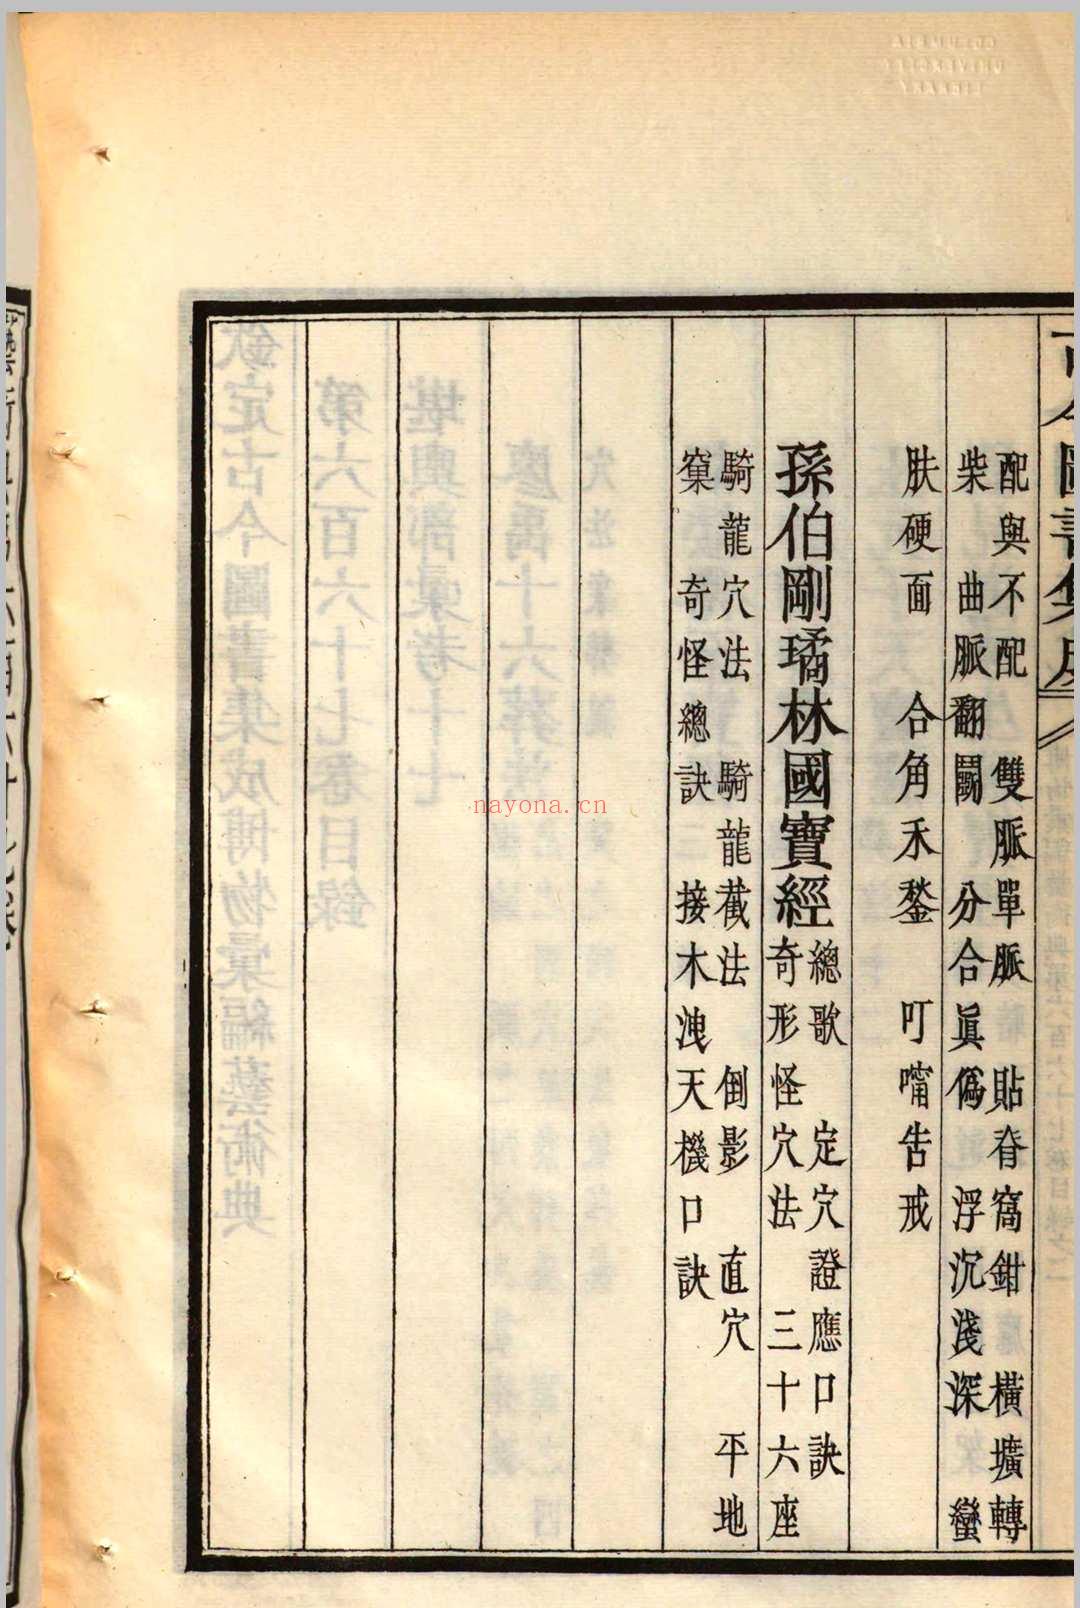 古今圖書集成
配與不配 雙脈單脈 貼脊窩鉗 橫壙轉
柴 曲脈翻鬭 分合眞僞 浮沉淺深 蠻
肤硬面 合角禾鍫 叮嚀告戒
孫伯剛璚林國寶經
總歌 定穴證應口訣
奇形怪穴法 三十六座
騎龍穴法 騎龍截法 倒影 直穴 平地
窠 奇怪總訣 接木洩天機口訣
nayona.cn
COLUMBIA
UNIVERSITY
LIBRARY